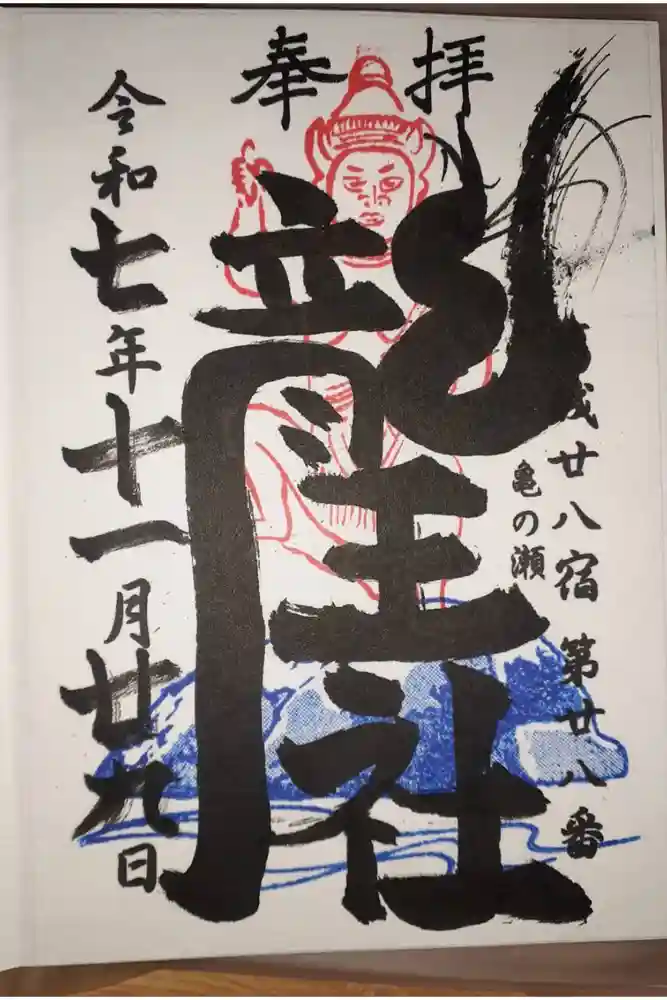 奉拝
城廿八宿 第廿八番
亀の瀬
龍王社
令和七年十一月廿九日